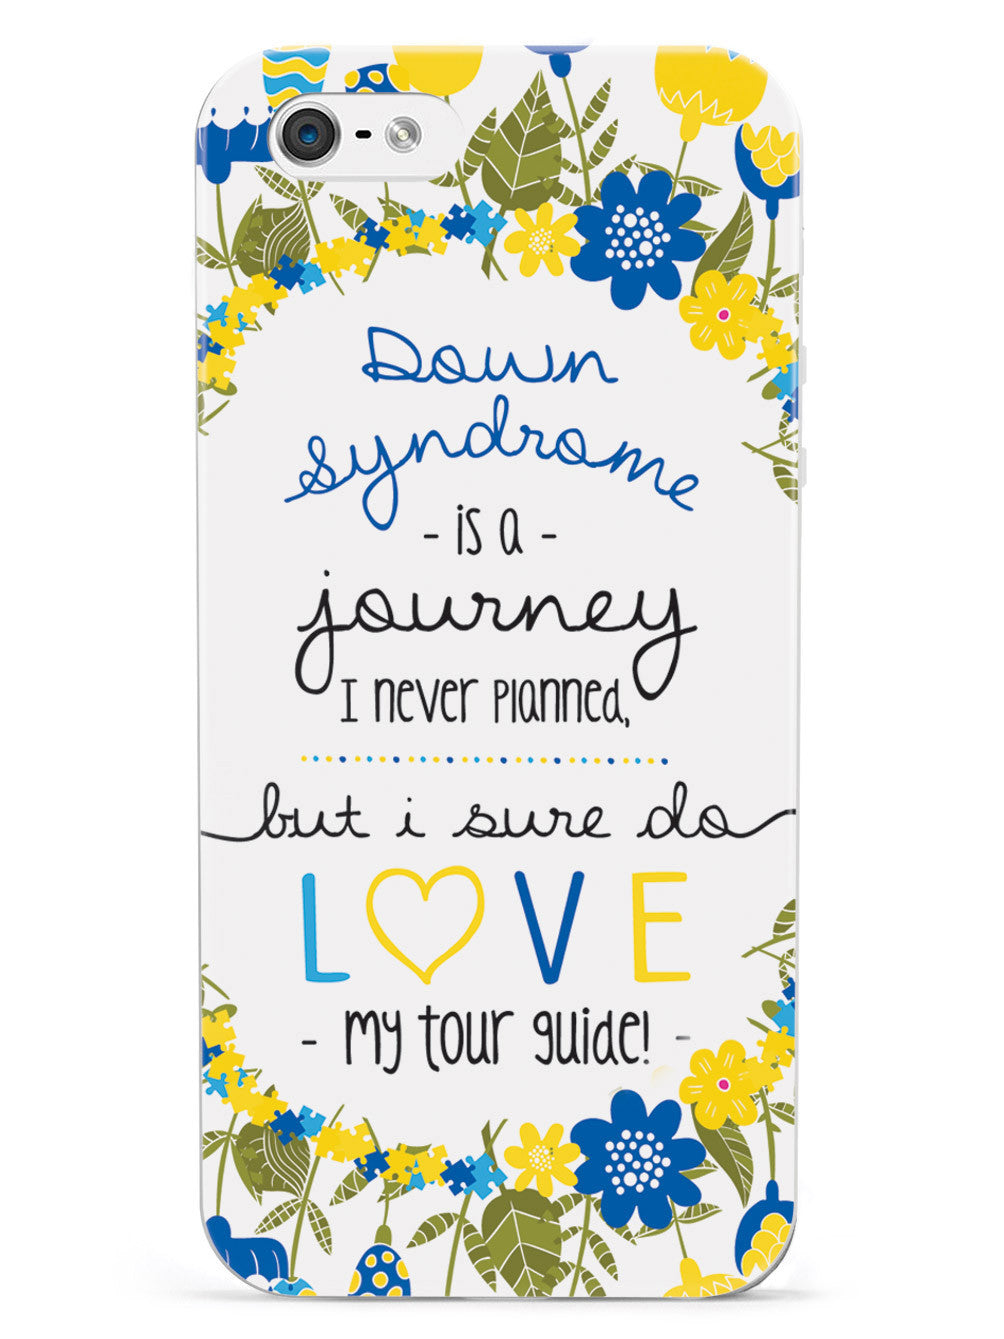 Down
syndrome
- is a -
journey
I never planned,
but i sure do
LOVE
- my tour guide! -